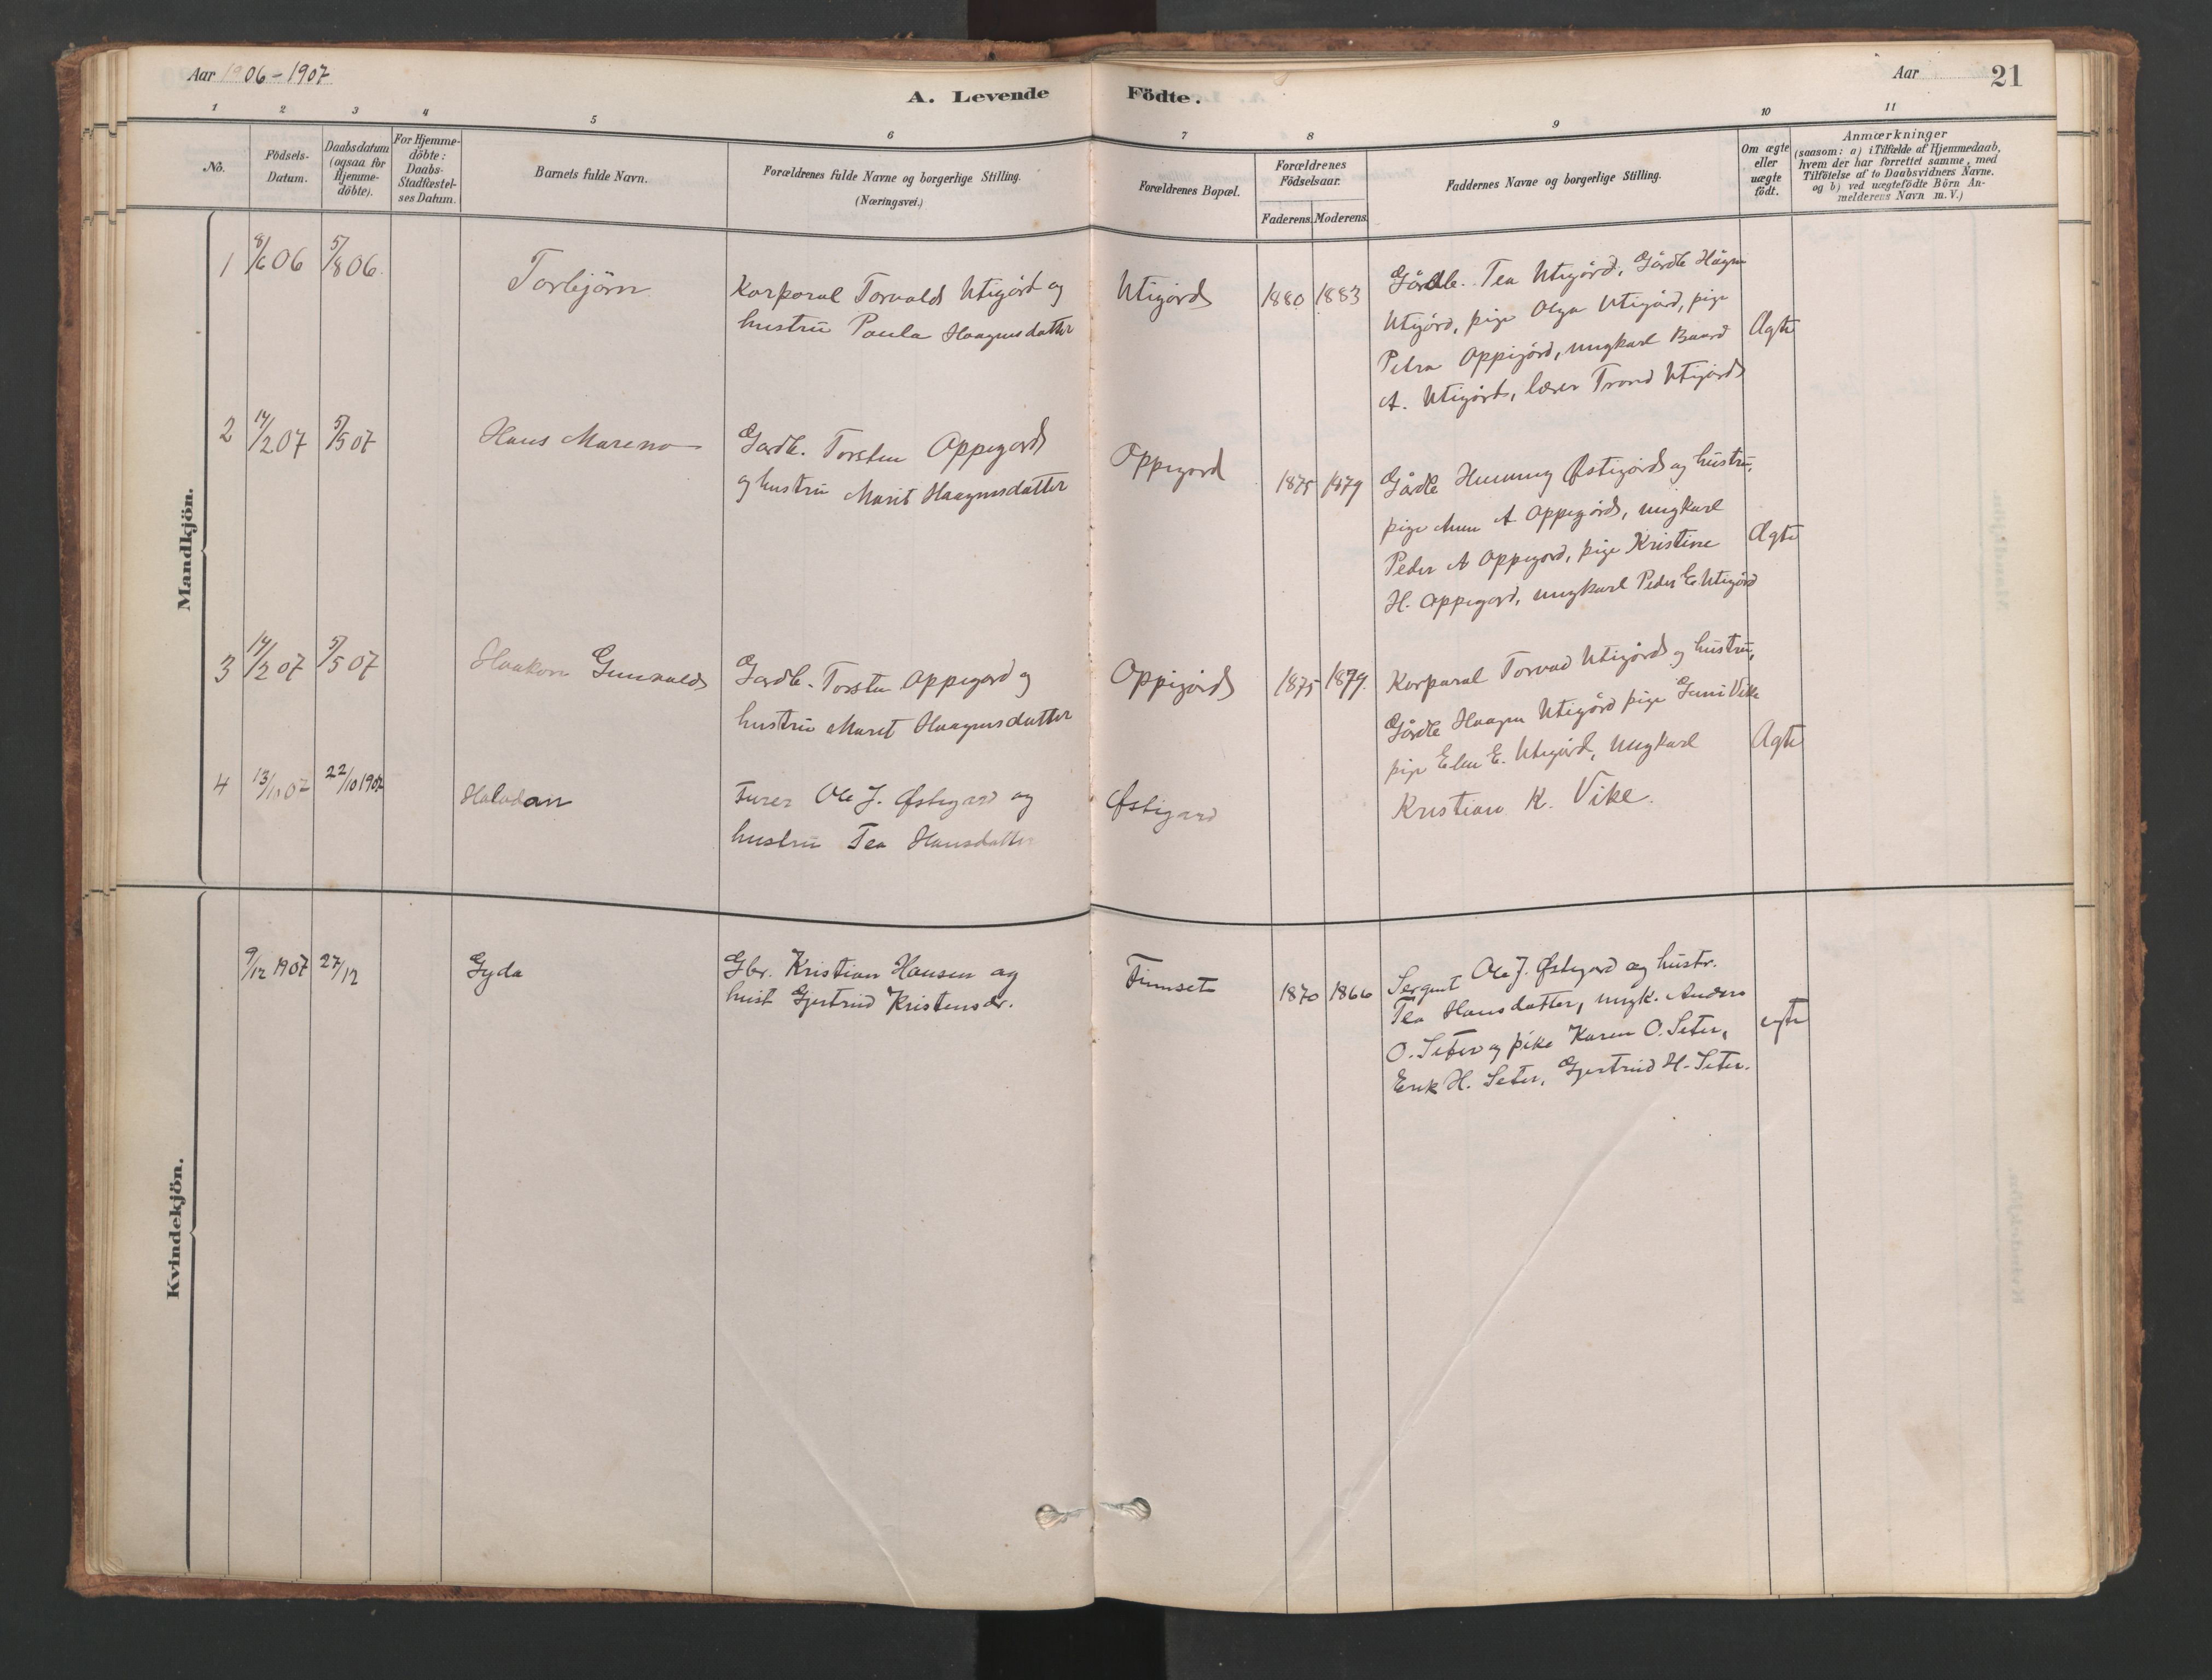 Aar 1906-1907
A. Levende Födte.
Aar 21
1 2 3 4 5 6 7 8 9 10 11
No.
Födsels-Datum.
Daabsdatum (ogsaa for Hjemme-döbte).
For Hjemme-döbte: Daabs-Stadfæstel-ses Datum.
Barnets fulde Navn.
Forældrenes fulde Navne og borgerlige Stilling.
(Næringsvei.)
Forældrenes Bopæl.
Forældrenes Födselsaar.
Faderens. Moderens.
Faddernes Navne og borgerlige Stilling.
Om ægte eller uægte födt.
Anmærkninger
(saasom: a) i Tilfælde af Hjemmedaab,
hvem der har forrettet samme, med
Tilföielse af to Daabsvidners Navne.
og b) ved uægtefödte Börn An-
melderens Navn m.V.)
Mandkjön.
1 8/6 06 5/8 06.
Torbjörn
Korporal Torvald Utigård og
hustru Paula Haagensdatter
Utigård
1880 1883
Gårdb. Tea Utigård, Gårdb Hågen
Utigård, pige Olga Utigård, pige
Petra Oppigård, ungkarl Baard
A. Utigård, lærer Trond Utigård
Ægte
2 14/2 07 5/5 07
Hans Mareno
Gardb. Torsten Oppegard
og hustru Marit Haagensdatter
Oppegard
1875 1879
Gårdb Hemming Østigård og hustru,
pige Ann A Oppegård, ungkarl
Peder A Oppegard, pige Kristine
H. Oppegard, ungkarl Peder E. Utigård
Ægte
3 14/2 07 5/5 07
Haakon Gunvald
Gardb. Torsten Oppegard og
hustru Marit Haagensdatter
Oppigård
1875 1879.
Korporal Torvad Utigård og hustru,
Gårdb Haagen Utigård pige Guni Vike
pige Elen E. Utigård, ungkarl
Kristian K. Vike.
Ægte
4 13/10 07 22/10 1907
Halvdan
Furer Ole J. Østigard og
hustru Tea Hansdatter
Østigard
Kvindekjön.
9/12 1907 27/12
Gyda
Gbr. Kristian Hansen og
hust Gjertrud Kristensdr.
Finnset
1870 1866
Sergent Ole J. Østigard og hustr.
Tea Hansdatter, ungk. Anders
O. Seter og pike Karen O. Seter,
Erik H. Seter, Gjertrud H. Seter.
egte